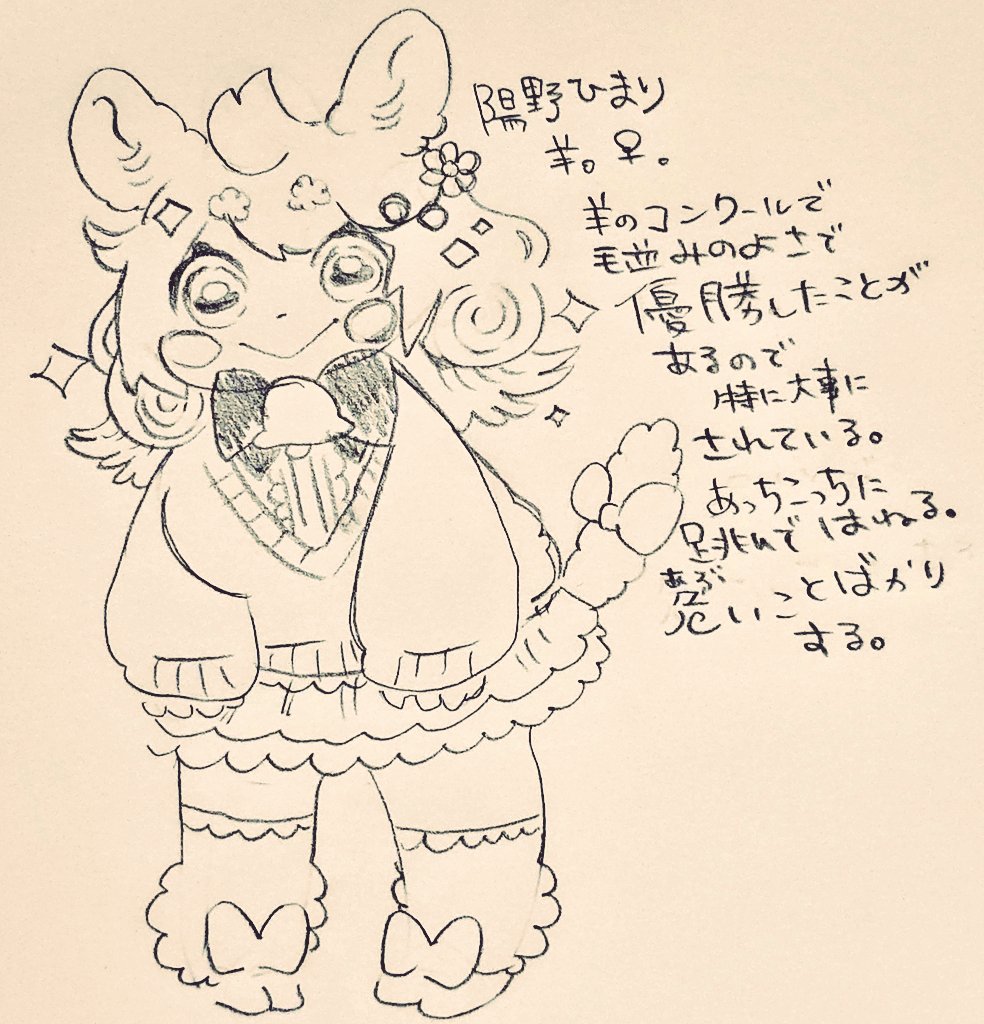 陽野ひまり
羊。♀。
羊のコンクールで
毛並みのよさで
優勝したことが
あるので
特に大事に
されている。
あっちこっちに
跳んではねる。
あぶ
危いことばかり
する。